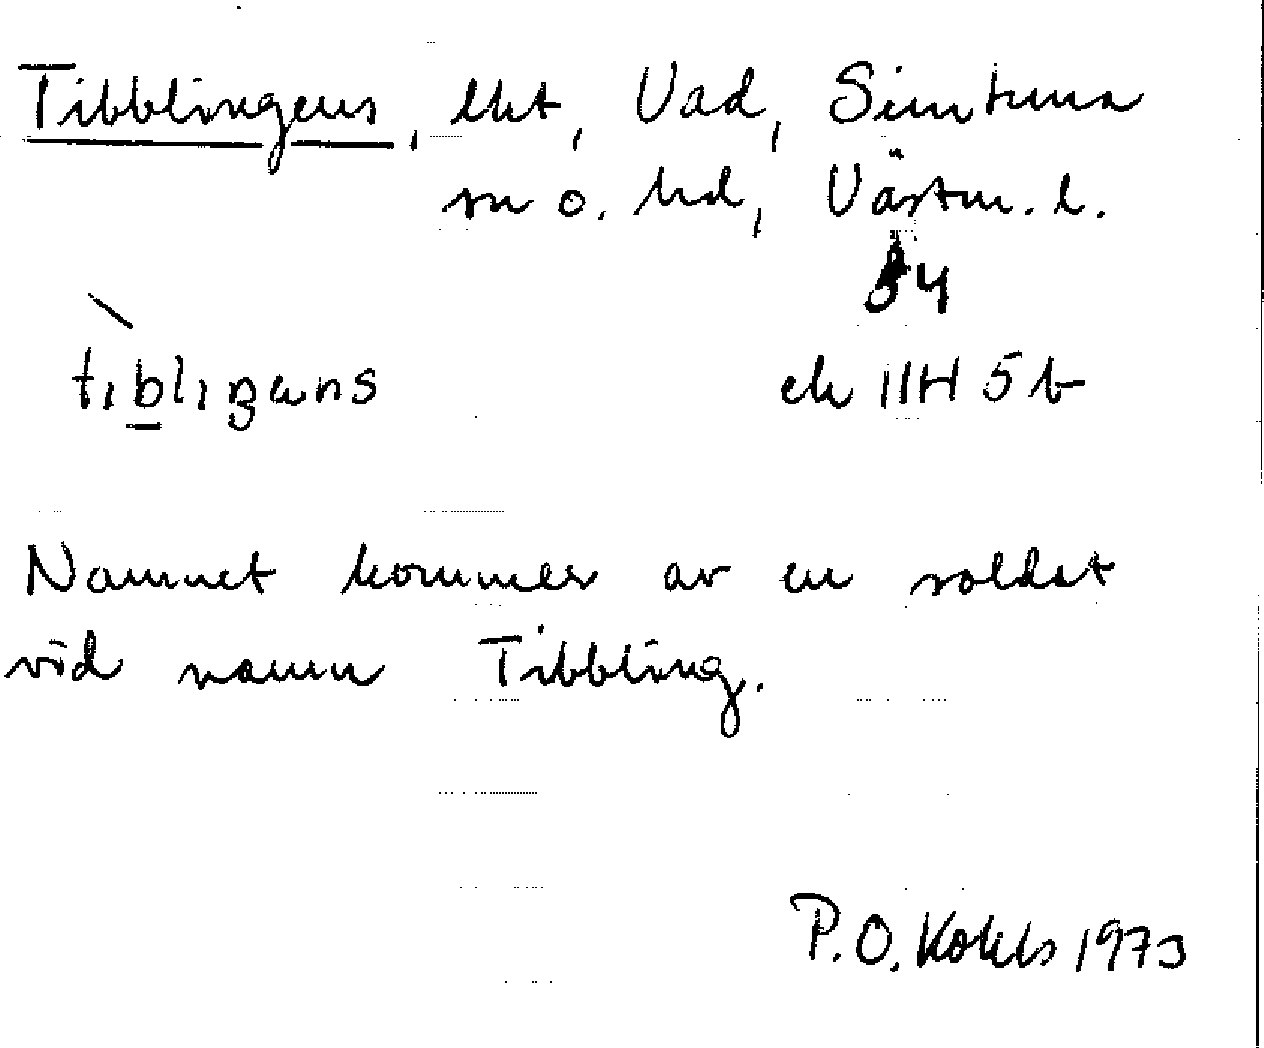 Tibblingens, lht, Vad, Simtuna
sn o. hd, Västm. l.
tìbliŋəns ek 11H 5b
Namnet kommer av en soldat
vid namn Tibbling.
P.O. 1973